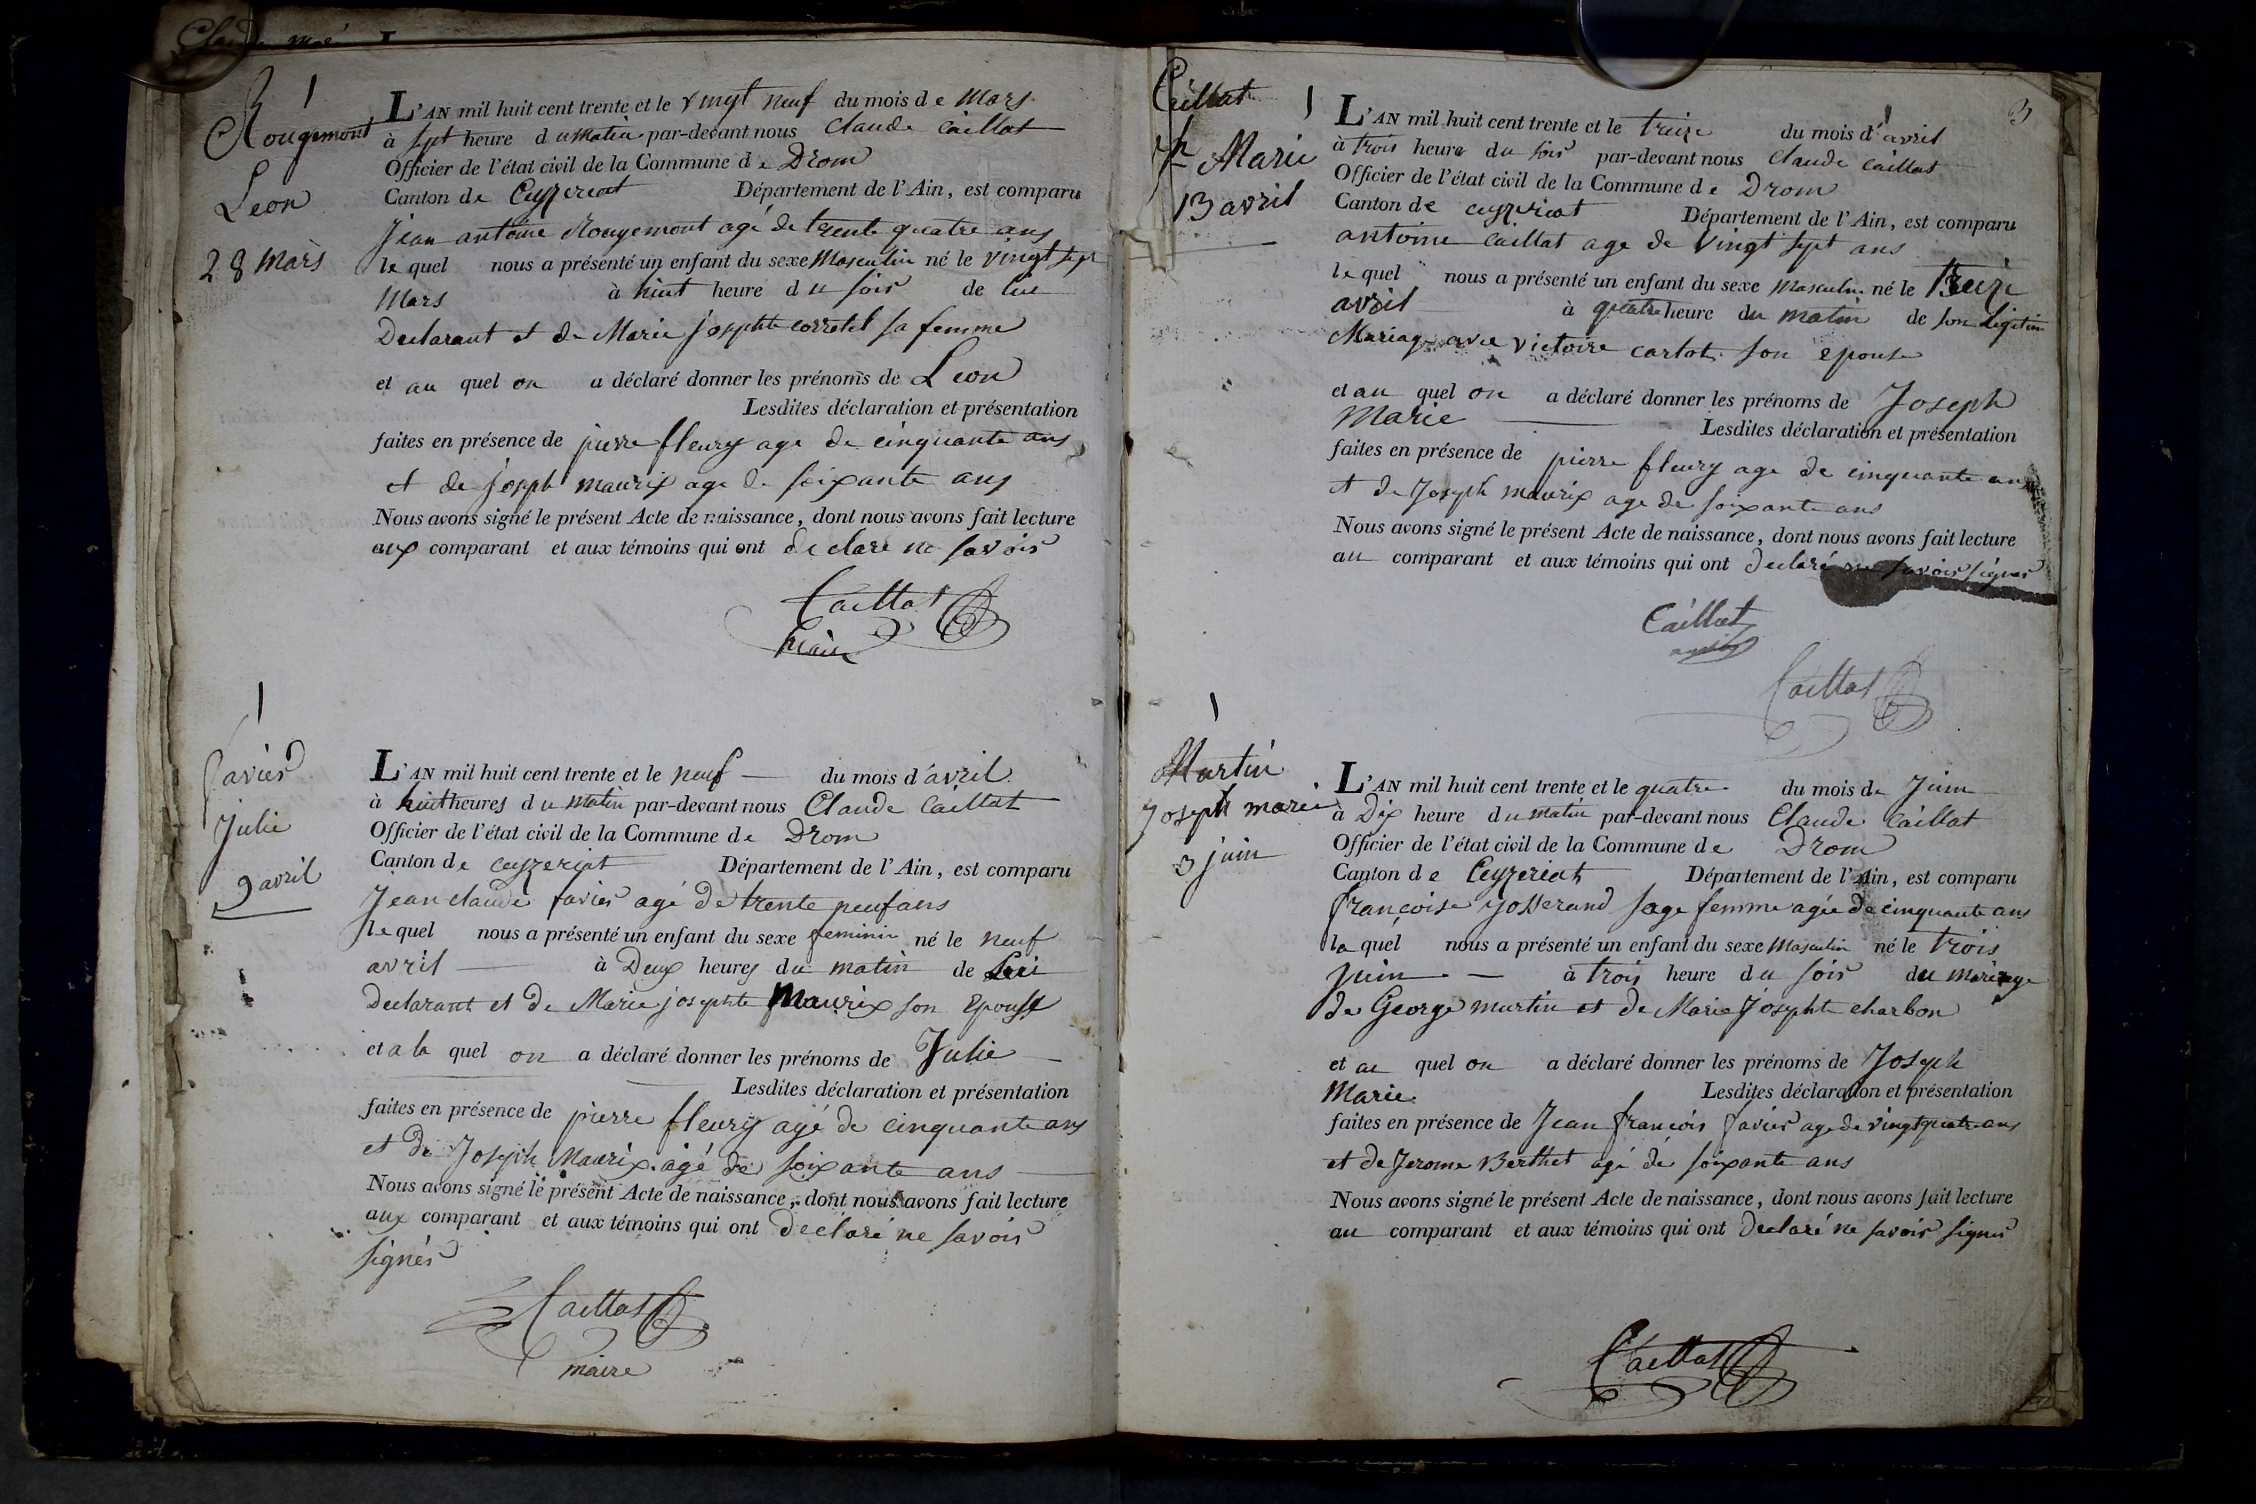 Rougemont
Leon
28 Mars
L'AN mil huit cent trente et le vingt neuf du mois de Mars
à sept heure du matin par-devant nous Claude Caillat
Officier de l'état civil de la Commune de Drom
Canton de Ceyzeriat Département de l'Ain, est comparu
Jean antoine Rougemont agé de trente quatre ans
le quel nous a présenté un enfant du sexe Masculin né le vingt sept
Mars à huit heure du soir de lui
Declarant et de Marie josephte corretel sa femme
et au quel on a déclaré donner les prénoms de Leon
Lesdites déclaration et présentation
faites en présence de pierre fleury age de cinquante ans
et de joseph maurix age de soixante ans
Nous avons signé le présent Acte de naissance, dont nous avons fait lecture
aux comparant et aux témoins qui ont declaré ne savoir
Caillat
maire
1
favier
Julie
9 avril
L'AN mil huit cent trente et le neuf du mois d'avril
à huit heures du matin par-devant nous Claude Caillat
Officier de l'état civil de la Commune de Drom
Canton de ceyzeriat Département de l'Ain, est comparu
Jean claude favier agé de trente neuf ans
le quel nous a présenté un enfant du sexe feminin né le neuf
avril à Deux heures du matin de Lui
Declarant et de Marie josephte Maurix son Epouse
et a la quel on a déclaré donner les prénoms de Julie
Lesdites déclaration et présentation
faites en présence de pierre fleury agé de cinquante ans
et de Joseph Maurix agé de soixante ans
Nous avons signé le présent Acte de naissance, dont nous avons fait lecture
aux comparant et aux témoins qui ont declaré ne savoir
signer
Caillat
maire
3
Caillat
Marie
13 avril
L'AN mil huit cent trente et le treize du mois d'avril
à trois heure du soir par-devant nous Claude Caillat
Officier de l'état civil de la Commune de Drom
Canton de ceyzeriat Département de l'Ain, est comparu
antoine Caillat age de vingt sept ans
le quel nous a présenté un enfant du sexe masculin né le Treize
avril à quatre heure du matin de son Legitime
Mariage avec victoire carlot son epouse
et au quel on a déclaré donner les prénoms de Joseph
Marie Lesdites déclaration et présentation
faites en présence de pierre fleury age de cinquante ans
et de Joseph maurix age de soixante ans
Nous avons signé le présent Acte de naissance, dont nous avons fait lecture
au comparant et aux témoins qui ont declaré ne savoir signer
Caillat
Caillat
1
Martin
Joseph marie
3 juin
L'AN mil huit cent trente et le quatre du mois de Juin
à Dix heure du matin par-devant nous Claude Caillat
Officier de l'état civil de la Commune de Drom
Canton de Ceyzeriat Département de l'Ain, est comparu
françoise josserand sage femme agée de cinquante ans
la quel nous a présenté un enfant du sexe Masculin né le trois
juin à trois heure du soir du mariage
de George martin et de Marie Josephte charbon
et au quel on a déclaré donner les prénoms de Joseph
Marie Lesdites déclaration et présentation
faites en présence de Jean françois favier age de vingt quatre ans
et de Jerome Berthet agé de soixante ans
Nous avons signé le présent Acte de naissance, dont nous avons fait lecture
au comparant et aux témoins qui ont declaré ne savoir signer
Caillat